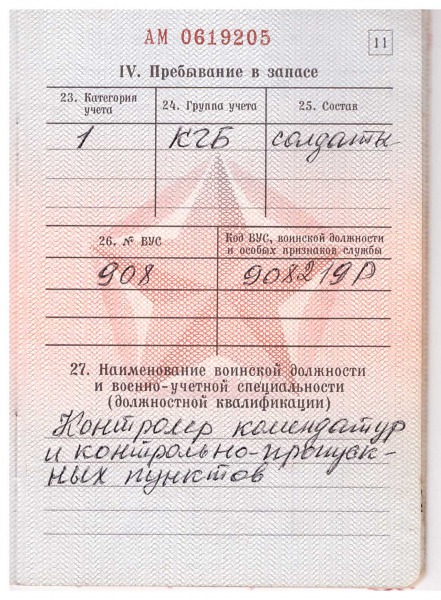 АМ 0619205
11
IV. Пребывание в запасе
23. Категория
учета
24. Группа учета
25. Состав
1
КГБ
солдаты
26. № ВУС
Код ВУС, воинской должности
и особых признаков службы
908
908219Р
27. Наименование воинской должности
и военно-учетной специальности
(должностной квалификации)
Контролер комендатур
и контрольно-пропуск-
ных пунктов